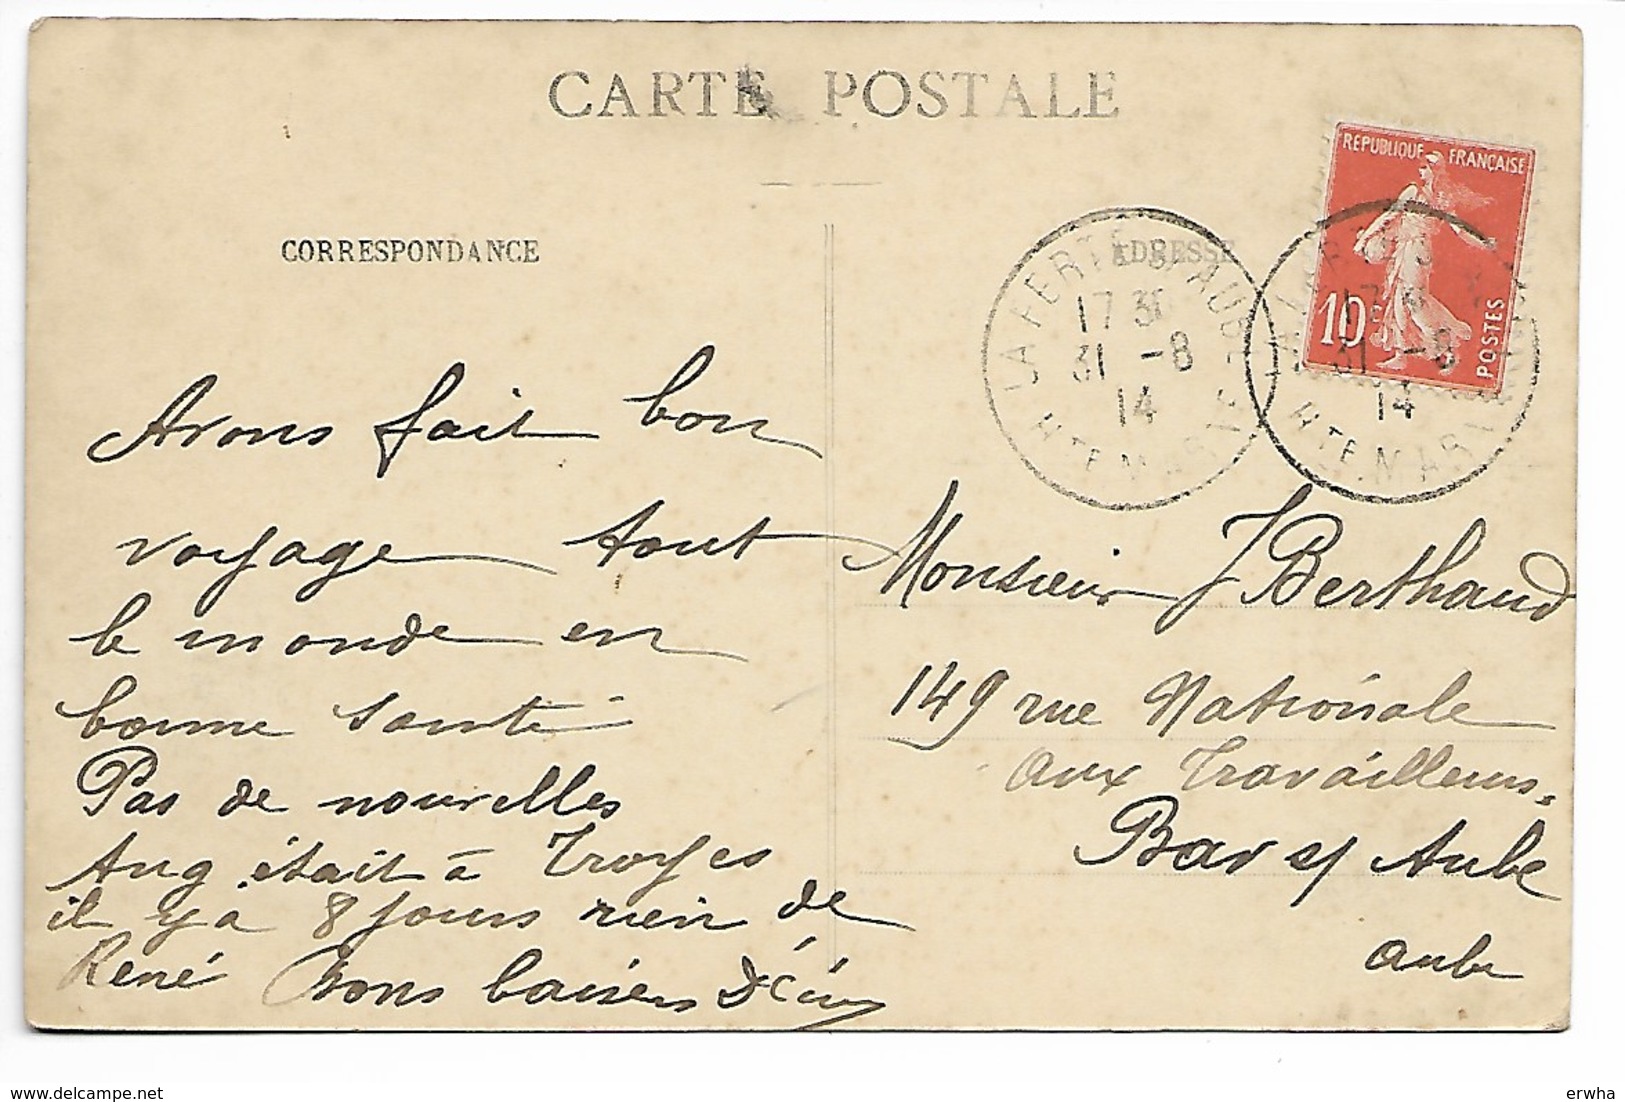 CARTE POSTALE
CORRESPONDANCE
ADRESSE
REPUBLIQUE FRANÇAISE
10c
POSTES
LA FERTÉ S/ AUBE
17 30
31 -8
14
HTE MARNE
LA FERTÉ S
17 3
31 -8
14
HTE MARNE
Avons fait bon
voyage tout
le monde en
bonne santé
Pas de nouvelles
Aug était à Troyes
il y a 8 jours rien de
René Bons baisers
Monsieur J Berthaud
149 rue Nationale
aux Travailleurs.
Bar s/ Aube
Aube
René
erwha